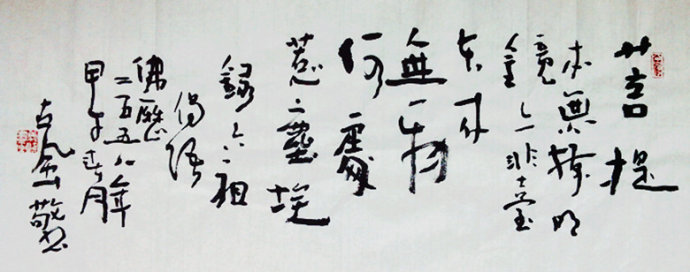 菩提
本無樹明
鏡亦非臺
本来
無一物
何處
惹塵埃
錄六祖
偈語
佛歷
二五五八年
甲午春月
敬書